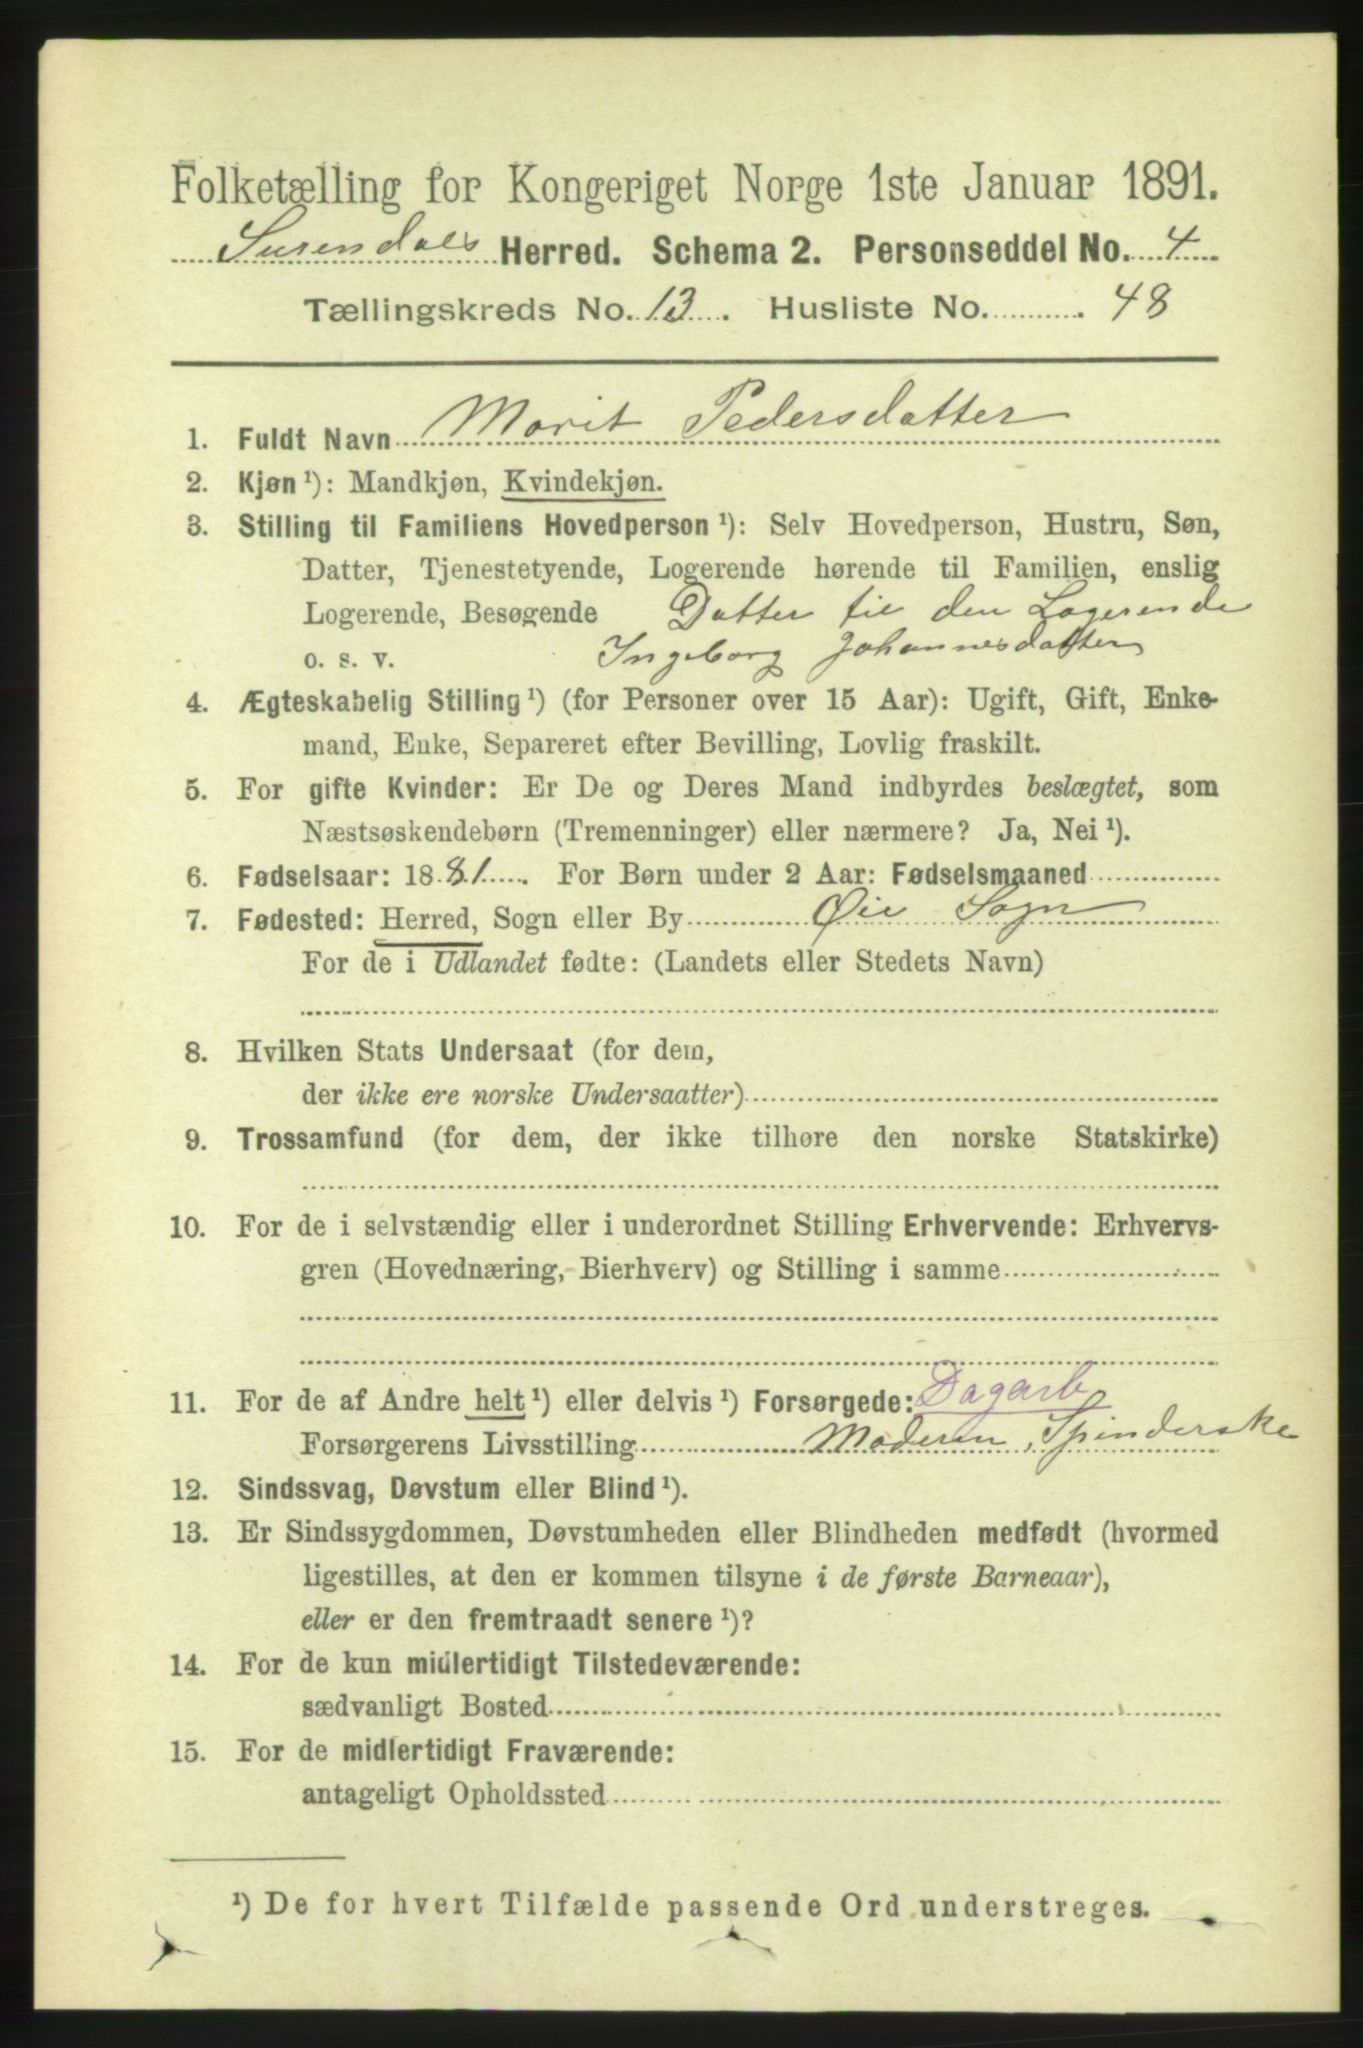 Folketælling for Kongeriget Norge 1ste Januar 1891.
Surendals Herred. Schema 2. Personseddel No. 4
Tællingskreds No. 13. Husliste No. 48
1. Fuldt Navn Marit Pedersdatter
2. Kjøn ¹): Mandkjøn, Kvindekjøn.
3. Stilling til Familiens Hovedperson ¹): Selv Hovedperson, Hustru, Søn,
Datter, Tjenestetyende, Logerende hørende til Familien, enslig
Logerende, Besøgende Datter til den Logerende
o. s. v. Ingeborg Johannesdatter
4. Ægteskabelig Stilling ¹) (for Personer over 15 Aar): Ugift, Gift, Enke-
mand, Enke, Separeret efter Bevilling, Lovlig fraskilt.
5. For gifte Kvinder: Er De og Deres Mand indbyrdes beslægtet, som
Næstsøskendebørn (Tremenninger) eller nærmere? Ja, Nei ¹).
6. Fødselsaar: 1881. For Børn under 2 Aar: Fødselsmaaned
7. Fødested: Herred, Sogn eller By Øie Sogn
For de i Udlandet fødte: (Landets eller Stedets Navn)
8. Hvilken Stats Undersaat (for dem,
der ikke ere norske Undersaatter)
9. Trossamfund (for dem, der ikke tilhøre den norske Statskirke)
10. For de i selvstændig eller i underordnet Stilling Erhvervende: Erhvervs-
gren (Hovednæring, Bierhverv) og Stilling i samme
11. For de af Andre helt ¹) eller delvis ¹) Forsørgede: Dagarb
Forsørgerens Livsstilling Moderen, Spinderske
12. Sindssvag, Døvstum eller Blind ¹).
13. Er Sindssygdommen, Døvstumheden eller Blindheden medfødt (hvormed
ligestilles, at den er kommen tilsyne i de første Barneaar),
eller er den fremtraadt senere ¹)?
14. For de kun midlertidigt Tilstedeværende:
sædvanligt Bosted
15. For de midlertidigt Fraværende:
antageligt Opholdssted
¹) De for hvert Tilfælde passende Ord understreges.